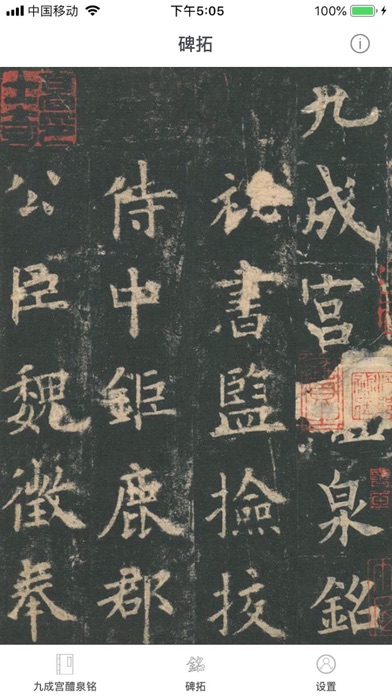 中国移动 下午5:05 100%
碑拓
九成宮泉銘
祕書監撿挍
侍中鉅鹿郡
公臣魏徵奉
九成宫醴泉铭 碑拓 设置